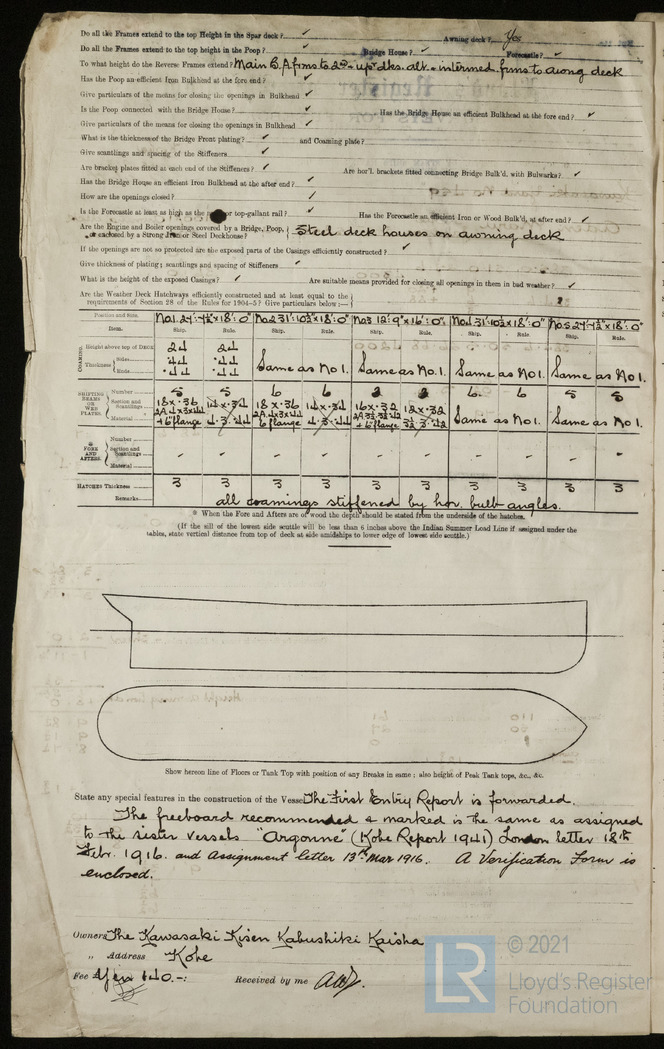 Do all the Frames extend to the top Height in the Spar deck? ✓ Awning deck? Yes
Do all the Frames extend to the top height in the Poop? ✓ Bridge House? ✓ Forecastle? ✓
To what height do the Reverse Frames extend? Main & A frms to 2nd & upr dks. alt. & intermed. frms to awng deck
Has the Poop an efficient Iron Bulkhead at the fore end? ✓
Give particulars of the means for closing the openings in Bulkhead ✓
Is the Poop connected with the Bridge House? ✓ Has the Bridge House an efficient Bulkhead at the fore end? ✓
Give particulars of the means for closing the openings in Bulkhead ✓
What is the thickness of the Bridge Front plating? ✓ and Coaming plate?
Give scantlings and spacing of the Stiffeners ✓
Are bracket plates fitted at each end of the Stiffeners? ✓ Are hor'l. brackets fitted connecting Bridge Bulk'd. with Bulwarks? ✓
Has the Bridge House an efficient Iron Bulkhead at the after end? ✓
How are the openings closed? ✓
Is the Forecastle at least as high as the or top-gallant rail? ✓ Has the Forecastle an efficient Iron or Wood Bulk'd, at after end? ✓
Are the Engine and Boiler openings covered by a Bridge, Poop, or enclosed by a Strong Iron or Steel Deckhouse? Steel deck houses on awning deck
If the openings are not so protected are the exposed parts of the Casings efficiently constructed? ✓
Give thickness of plating; scantlings and spacing of Stiffeners ✓
What is the height of the exposed Casings? ✓ Are suitable means provided for closing all openings in them in bad weather? ✓
Are the Weather Deck Hatchways efficiently constructed and at least equal to the
requirements of Section 28 of the Rules for 1904-5? Give particulars below:—
Position and Size. No.1 27'-4½" x 18'.0" No.2 31'.10½" x 18'.0" No.3 12'.9" x 16'.0" No.4 31'.10½" x 18'.0" No.5 27'-4½" x 18'.0"
Item. Ship. Rule. Ship. Rule. Ship. Rule. Ship. Rule. Ship. Rule.
COAMING. Height above top of DECK 24 24
Thickness Sides .44 .44 Same as No 1. Same as No 1. Same as No 1. Same as No 1.
Ends .44 .44
SHIFTING BEAMS OR WEB PLATES. Number 5 5 6 6 2 2 6 6 5 5
Section and Scantlings 18 x .36 14 x .34 18 x .36 14 x .34 16 x .32 12 x .32 Same as No 1. Same as No 1.
Material + 6" flange 4.3.44 6" flange 4.3.44 + 6" flange 3½.3.42
* FORE AND AFTERS. Number
Section and Scantlings - - - - - - - - - -
Material
HATCHES Thickness 3 3 3 3 3 3 3 3 3 3
Remarks all coamings stiffened by hor. bulb angles.
* When the Fore and Afters are of wood the depth should be stated from the underside of the hatches.
(If the sill of the lowest side scuttle will be less than 6 inches above the Indian Summer Load Line if assigned under the
tables, state vertical distance from top of deck at side amidships to lower edge of lowest side scuttle.)
Show hereon line of Floors or Tank Top with position of any Breaks in same; also height of Peak Tank tops, &c., &c.
State any special features in the construction of the Vessel The First Entry Report is forwarded.
The freeboard recommended & marked is the same as assigned
to the sister vessels "Argonne" (Kobe Report 1941) London letter 18th
Febr. 1916. and Assignment letter 13th Mar 1916. A Verification Form is
enclosed.
Owners The Kawasaki Kisen Kabushiki Kaisha
„ Address Kobe
Fee Yen 140.-: Received by me
LR © 2021
Lloyd's Register
Foundation